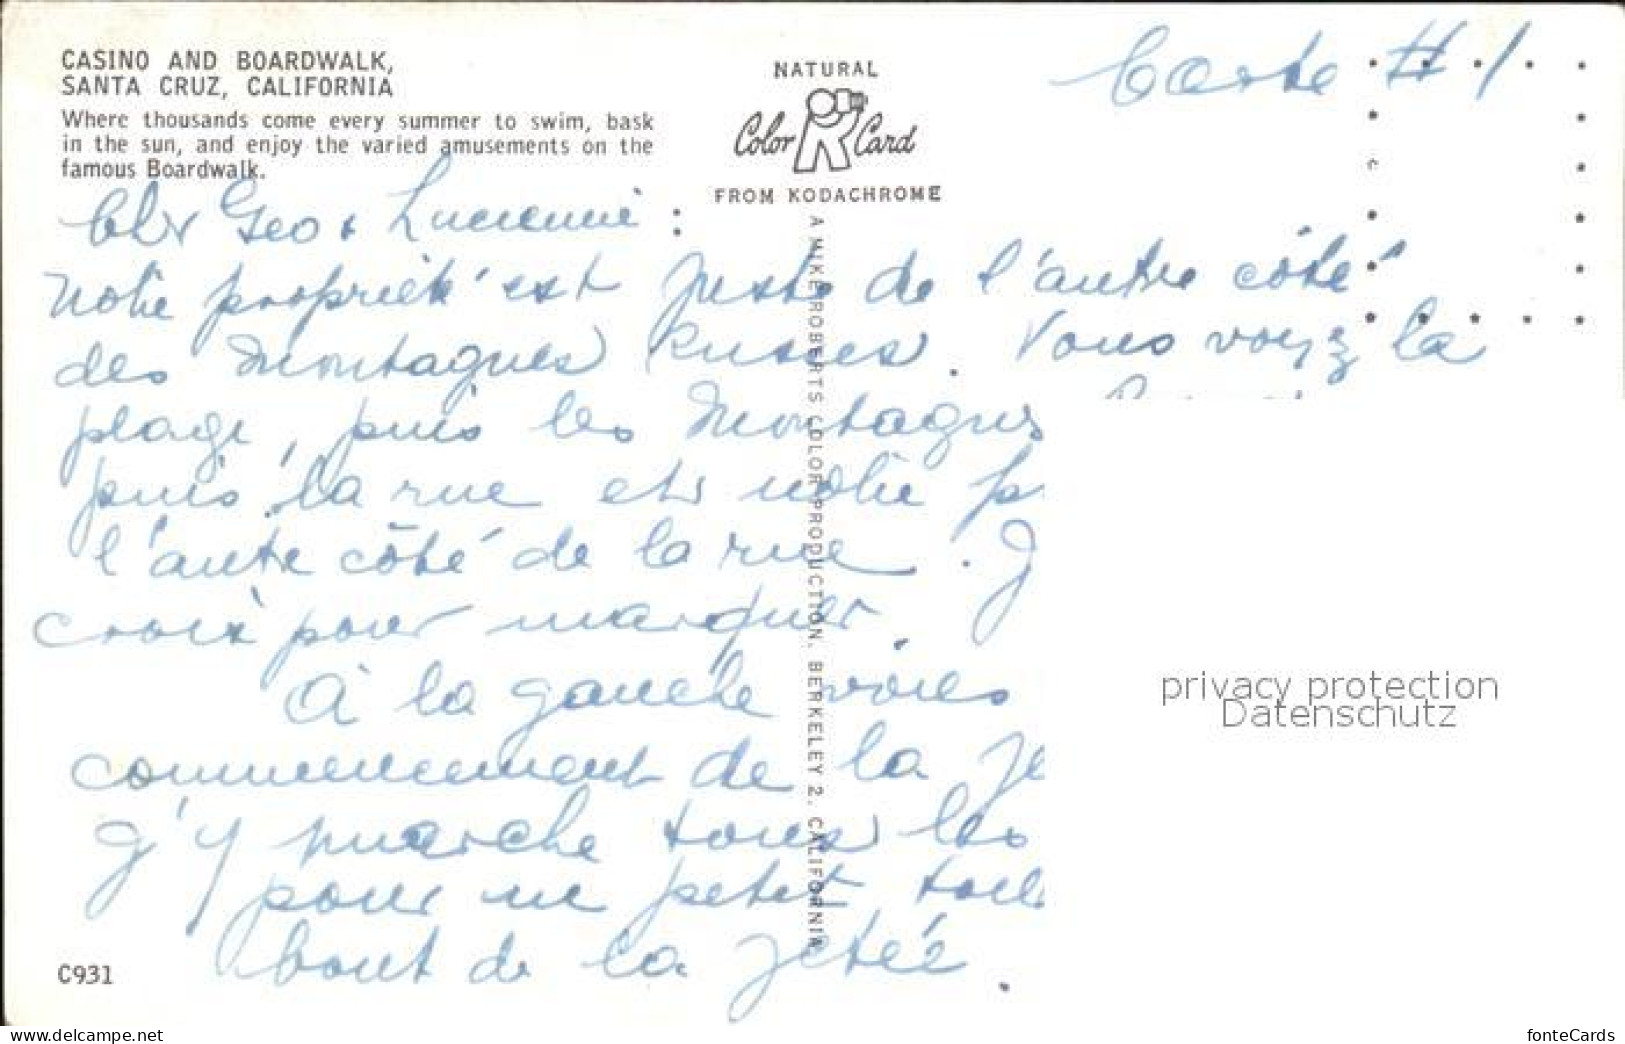 CASINO AND BOARDWALK,
SANTA CRUZ, CALIFORNIA
Where thousands come every summer to swim, bask
in the sun, and enjoy the varied amusements on the
famous Boardwalk.
NATURAL
Color Card
FROM KODACHROME
A MIKE ROBERTS COLOR PRODUCTION, BERKELEY 2, CALIFORNIA
Carte # 1
Chr Geo + Lucienne :
Notre propriété est juste de l'autre côté
des Montagnes Russes. Vous voyez la
plage, puis les Montagnes
puis la rue et notre p
l'autre côté de la rue. J
croix pour marquer.
à la gauche voies
commencement de la Je
J'y marche tous les
pour un petit tour
bout de la Jetée.
C931
privacy protection
Datenschutz
www.delcampe.net
fonteCards